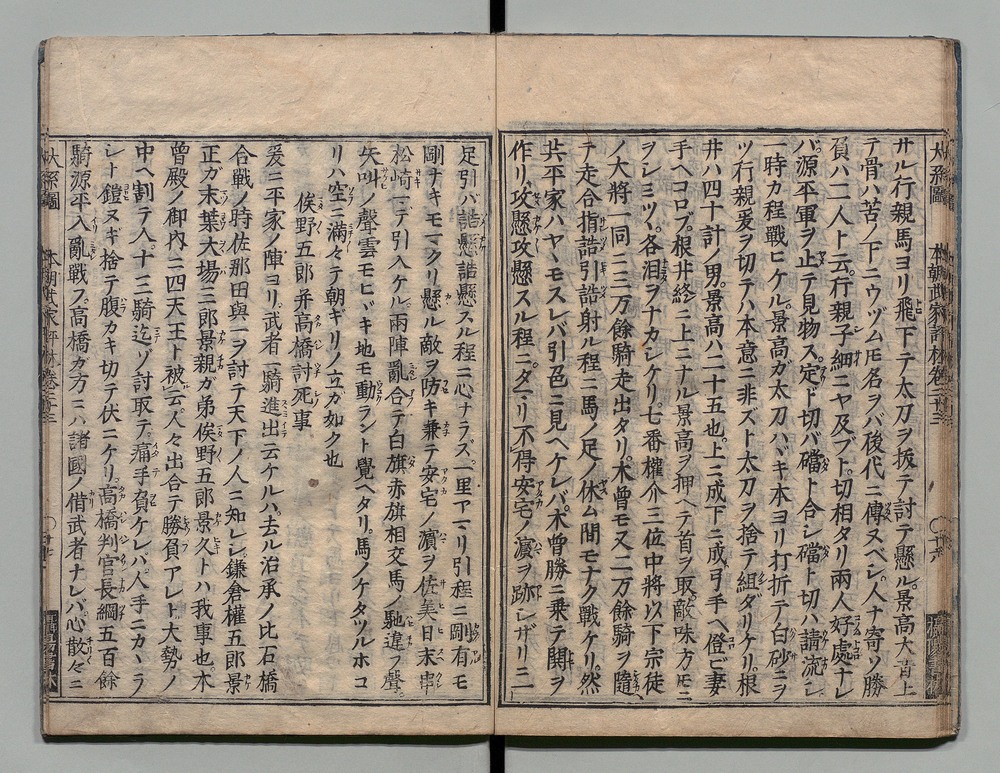 サル行親馬ヨリ飛下テ太刀ヲ抜テ討テ懸ル景高大ニ肯上
テ骨ハ苦ノ下ニウヅムトモ名ヲバ後代ニ傳ヌベシ人ナ寄ソ勝
負ハ二人ト云行親子細ニヤ及ブト切相タリ兩人好處ナレ
バ源平軍ヲ止テ見物ス定ト切バ礑ト合シ礑ト切ハ請流シ
一時カ程戰ヒケル景高ガ太刀ハバキ本ヨリ打折テ白砂ニヲ
ツ行親爰ヲ切テハ本意ニ非ズト太刀ヲ捨テ組ダリケリ根
井ハ四十計ノ男景高ハ二十五也上ニ成下ニ成弓手ヘ僜ビ妻
手ヘコロブ根井終ニ上ニナル景高ヲ押ヘテ首ヲ取敵味方トモニ
ヲシミツヽ各泪ヲナカシケリ七番權介三位中將以下宗徒
ノ大將一同ニ三万餘騎走出タリ木曾モ又二万餘騎ヲ隨
テ走合指詰引詰射ル程ニ馬ノ足ノ休ム間モナク戰ケリ然
共平家ハヤヽモスレバ引色ニ見ヘケレバ木曾勝ニ乗テ関ヲ
作リ攻懸攻懸スル程ニタマリ不得安宅ノ濵ヲ跡レザリニ
足引バ詰懸詰懸スル程ニ心ナラズ一里アマリ引程ニ剛有モ
剛ナキモマクリ懸ル敵ヲ防キ兼テ安宅ノ濵ヲ佐美日末串
松﨑マテ引入ケル兩陣亂合テ白旗赤旗相交馬ノ馳違フ聲
矢叫ノ聲雲モヒヾキ地モ動ラント覺ヘタリ馬ノケタツルホコ
リハ空ニ滿々テ朝ギリノ立ガ如ク也
俟野五郎并高橋討死事
爰ニ平家ノ陣ヨリ武者一騎進出云ケルハ去ル治承ノ比石橋
合戰ノ時佐那田與一ヲ討テ天下ノ人ニ知レシ鎌倉權五郎景
正ガ末葉大場三郎景親ガ弟俟野五郎景久トハ我事也木
曾殿ノ御内ニ四天王ト被云人々出合テ勝負アレト大勢ノ
中ヘ割テ入十三騎迄ゾ討取テ痛手負ケレバ人手ニカヽラ
シト鎧ヌギ捨テ腹カキ切テ伏ニケリ高橋判官長綱五百餘
騎源平入亂戰フ高橋カ方ニハ諸國ノ借武者ナレバ心散々ニ